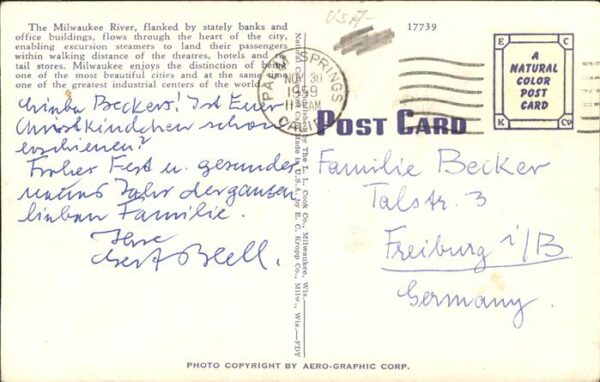 The Milwaukee River, flanked by stately banks and
office buildings, flows through the heart of the city,
enabling excursion steamers to land their passengers
within walking distance of the theatres, hotels and re-
tail stores. Milwaukee enjoys the distinction of being
one of the most beautiful cities and at the same time
one of the greatest industrial centers of the world.
Liebe Beckers! Ist Euer
Christkindchen schon
erschienen?
Froher Fest u. gesundes
neues Jahr der ganzen
lieben Familie.
Ihre
Natural Color Post Card Made in U.S.A. by E. C. Kropp Co., Milw., Wis.—FDV
Published by The L. L. Cook Co., Milwaukee, Wis.
USA
17739
PALM SPRINGS
NOV 30
1959
AM
CALIF.
A
NATURAL
COLOR
POST
CARD
E C
K Co
POST CARD
Familie Becker
Talstr. 3
Freiburg i/B
Germany.
PHOTO COPYRIGHT BY AERO-GRAPHIC CORP.